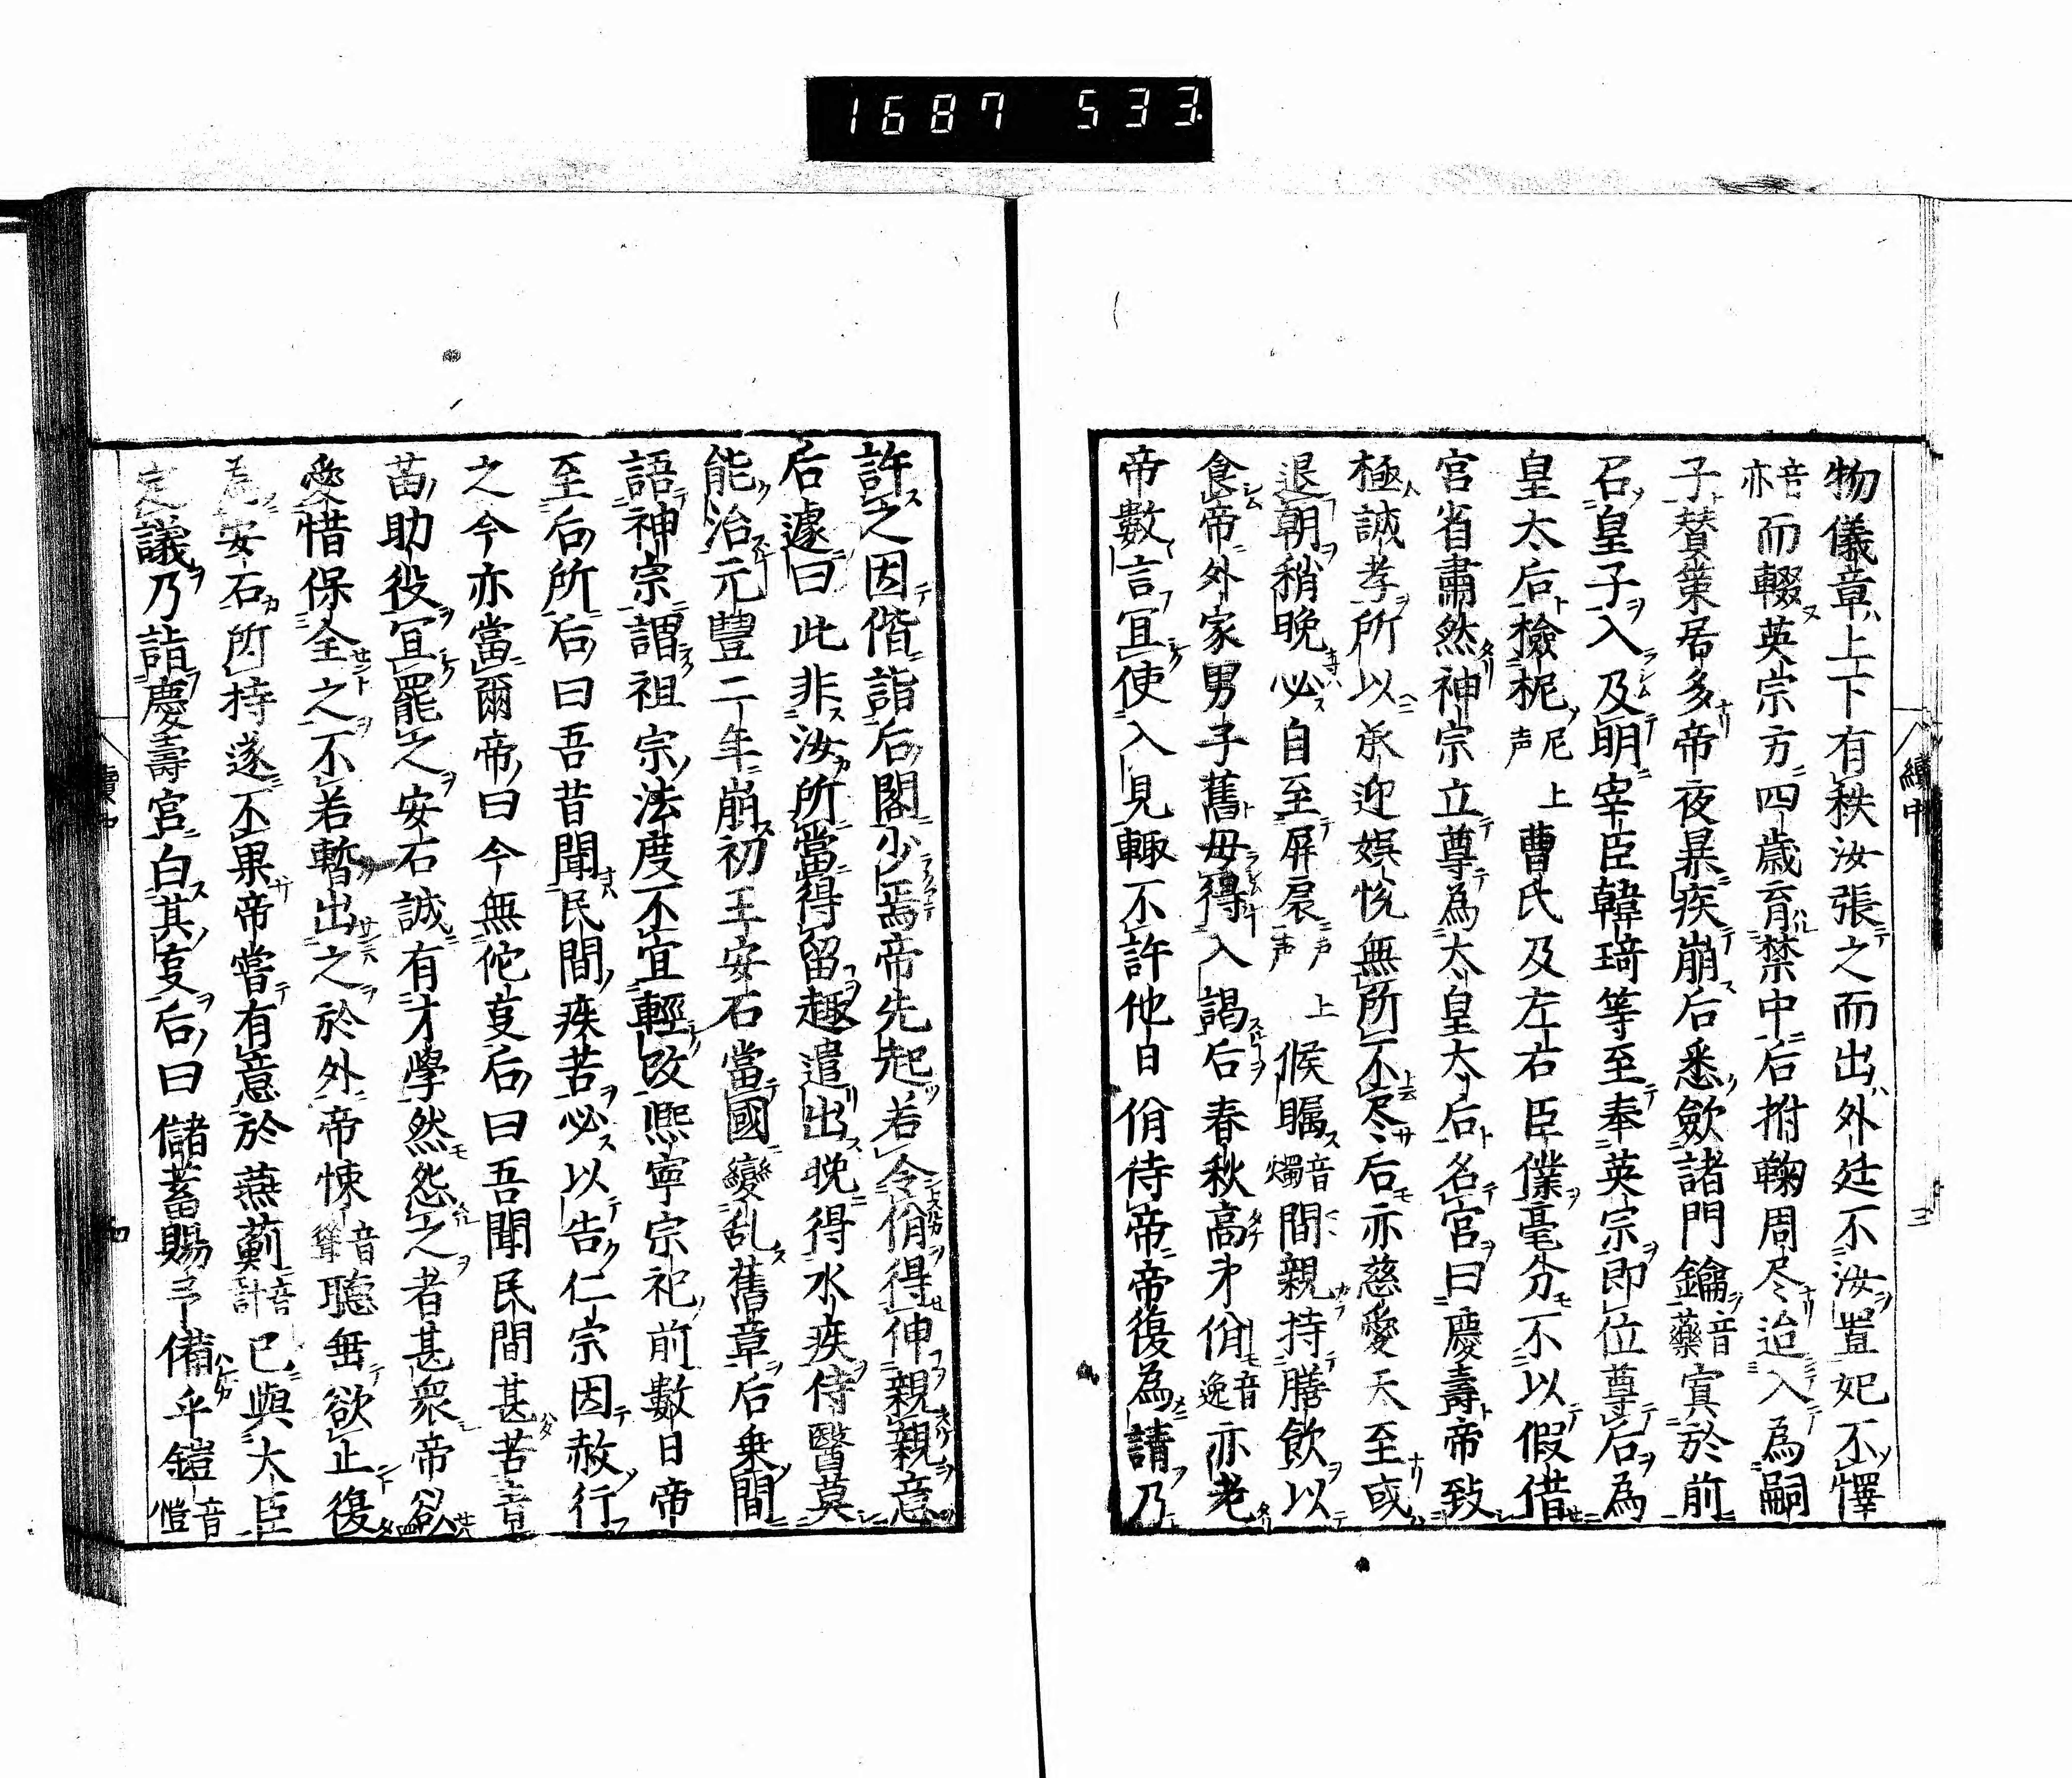 1687 533.
物儀章上下有秩汝張之而出外廷不汝置妃不懌
音亦而輟英宗方四歳育禁中后拊鞠周尽迨入為嗣
子賛策居多帝夜㬥疾崩后悉歛諸門鑰音藥寘於前
召皇子入及明宰臣韓琦等至奉英宗即位尊后為
皇太后檢柅尼上声曹氏及左右臣僕毫分不以假借
宮省肅然神宗立尊為太皇太后名宮曰慶壽帝致
極誠孝所以承迎娯悦無所不尽后亦慈愛天至或
退朝稍晩必自至屏扆上声候矚音燭間親持膳飲以
食帝外家男子舊毋得入謁后春秋高弟佾音逸亦老
帝數言宜使入見輙不許他日佾侍帝帝復為請乃
續中
三
許之因偕詣后閤少焉帝先起若令佾得伸親親意
后遽曰此非汝所當得留趣遣出晩得水疾侍醫莫
能治元豐二年崩初王安石當國變乱舊章后乗間
語神宗謂祖宗法度不宜輕改熈寧宗祀前數日帝
至后所后曰吾昔聞民間疾苦必以告仁宗因赦行
之今亦當爾帝曰今無佗𠭥后曰吾聞民間甚苦青
苗助役宜罷之安石誠有才學然怨之者甚衆帝欲
愛惜保全之不若暫出之於外帝悚音聳聽垂欲止復
為安石所持遂不果帝嘗有意於燕薊音計已與大臣
定議乃詣慶壽宮白其𠭥后曰儲蓄賜予備乎鎧音愷